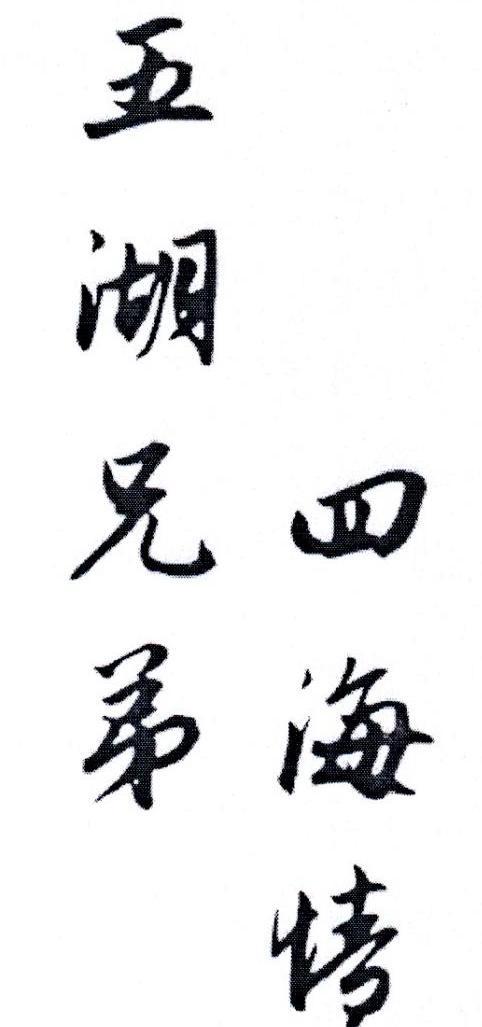 四海情
五湖兄弟